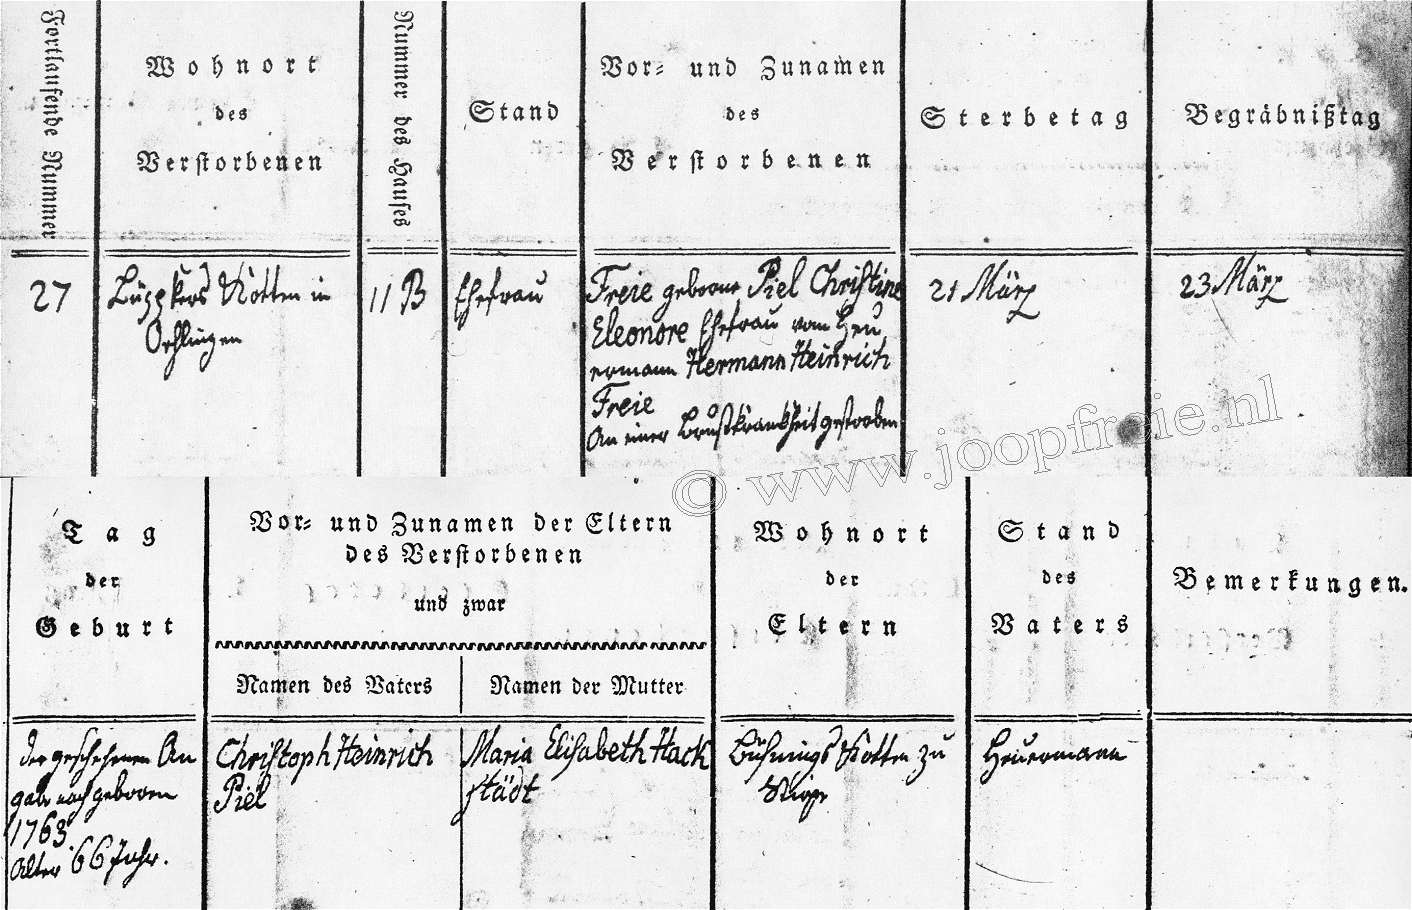 Fortlaufende Nummer
Wohnort
des
Verstorbenen
Nummer des Hauses
Stand
Vor- und Zunamen
des
Verstorbenen
Sterbetag
Begräbnißtag
27
Lüppkers Kotten in
Oehlingen
11 B
Ehefrau
Freie geborne Piel Christine
Eleonore Ehefrau vom Heu
ermann Hermann Heinrich
Freie
An einer Brustkrankheit gestorben
21 März
23 März
© www.joopfreie.nl
Tag
der
Geburt
Vor- und Zunamen der Eltern
des Verstorbenen
und zwar
Namen des Vaters
Namen der Mutter
Wohnort
der
Eltern
Stand
des
Vaters
Bemerkungen.
der geschehenen An
gabe nach geboren
1763.
Alter 66 Jahr.
Christoph Heinrich
Piel
Maria Elisabeth Hack
städt
Kotten zu
Heuermann